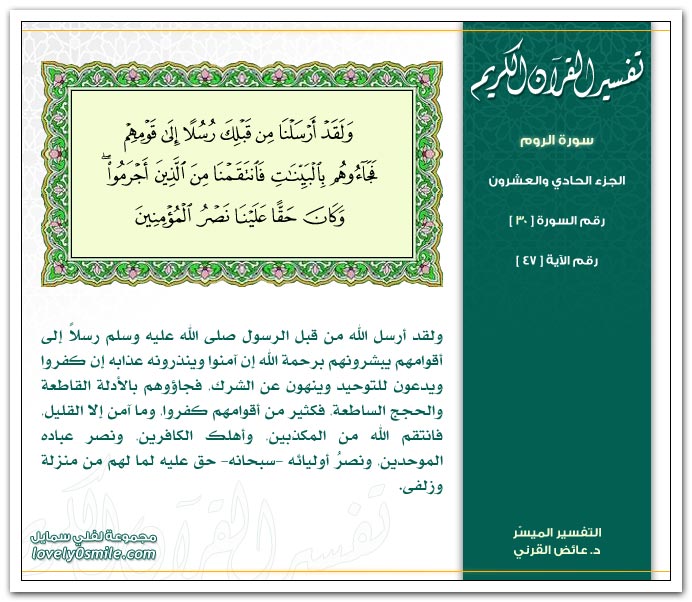 تفسير القرآن الكريم
سورة الروم
الجزء الحادي والعشرون
رقم السورة [ ٣٠ ]
رقم الآية [ ٤٧ ]
وَلَقَدْ أَرْسَلْنَا مِن قَبْلِكَ رُسُلًا إِلَىٰ قَوْمِهِمْ
فَجَآءُوهُم بِٱلْبَيِّنَٰتِ فَٱنتَقَمْنَا مِنَ ٱلَّذِينَ أَجْرَمُوا۟ ۖ
وَكَانَ حَقًّا عَلَيْنَا نَصْرُ ٱلْمُؤْمِنِينَ
ولقد أرسل الله من قبل الرسول صلى الله عليه وسلم رسلاً إلى
أقوامهم يبشرونهم برحمة الله إن آمنوا وينذرونه عذابه إن كفروا
ويدعون للتوحيد وينهون عن الشرك، فجاؤوهم بالأدلة القاطعة
والحجج الساطعة، فكثير من أقوامهم كفروا، وما آمن إلا القليل،
فانتقم الله من المكذبين، وأهلك الكافرين، ونصر عباده
الموحدين، ونصرُ أوليائه -سبحانه- حق عليه لما لهم من منزلة
وزلفى.
تفسير القرآن الكريم
مجموعة لفلي سمايل
lovely0smile.com
التفسير الميسّر
د. عائض القرني